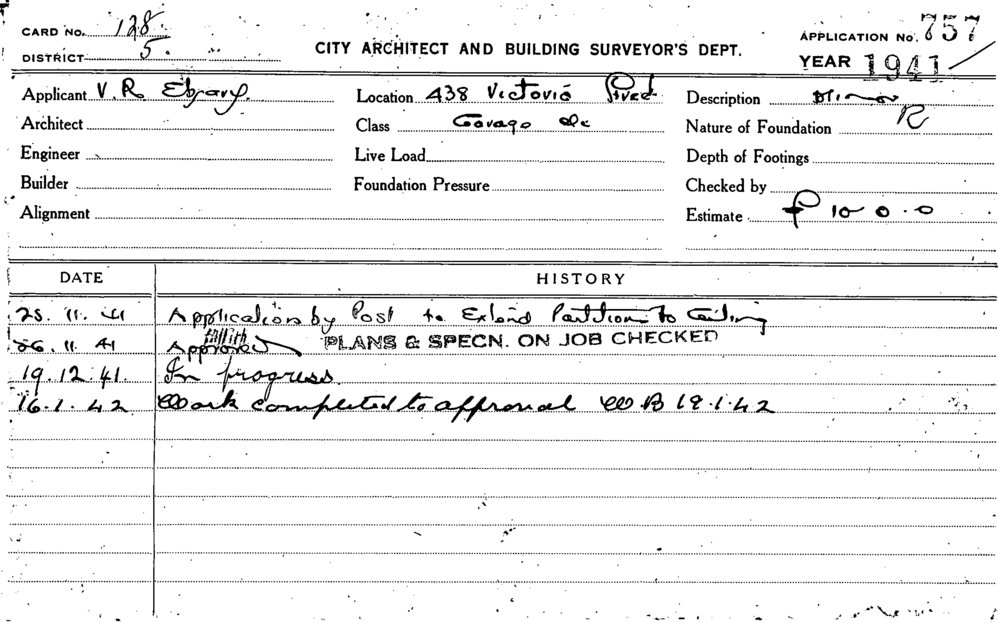 CARD No. 128.
DISTRICT 5.
CITY ARCHITECT AND BUILDING SURVEYOR'S DEPT.
APPLICATION No. 757
YEAR 1941
Applicant V. R. Location 438 Victoria Description Minor
Architect Class Garage &c Nature of Foundation R
Engineer Live Load Depth of Footings
Builder Foundation Pressure Checked by
Alignment Estimate £ 10 0.0
DATE HISTORY
25.11.41 Application by Post to Extend Partitions to Ceiling
26.11.41 Approved PLANS & SPECN. ON JOB CHECKED
19.12.41. In progress.
16.1.42 Work completed to approval WB 19.1.42